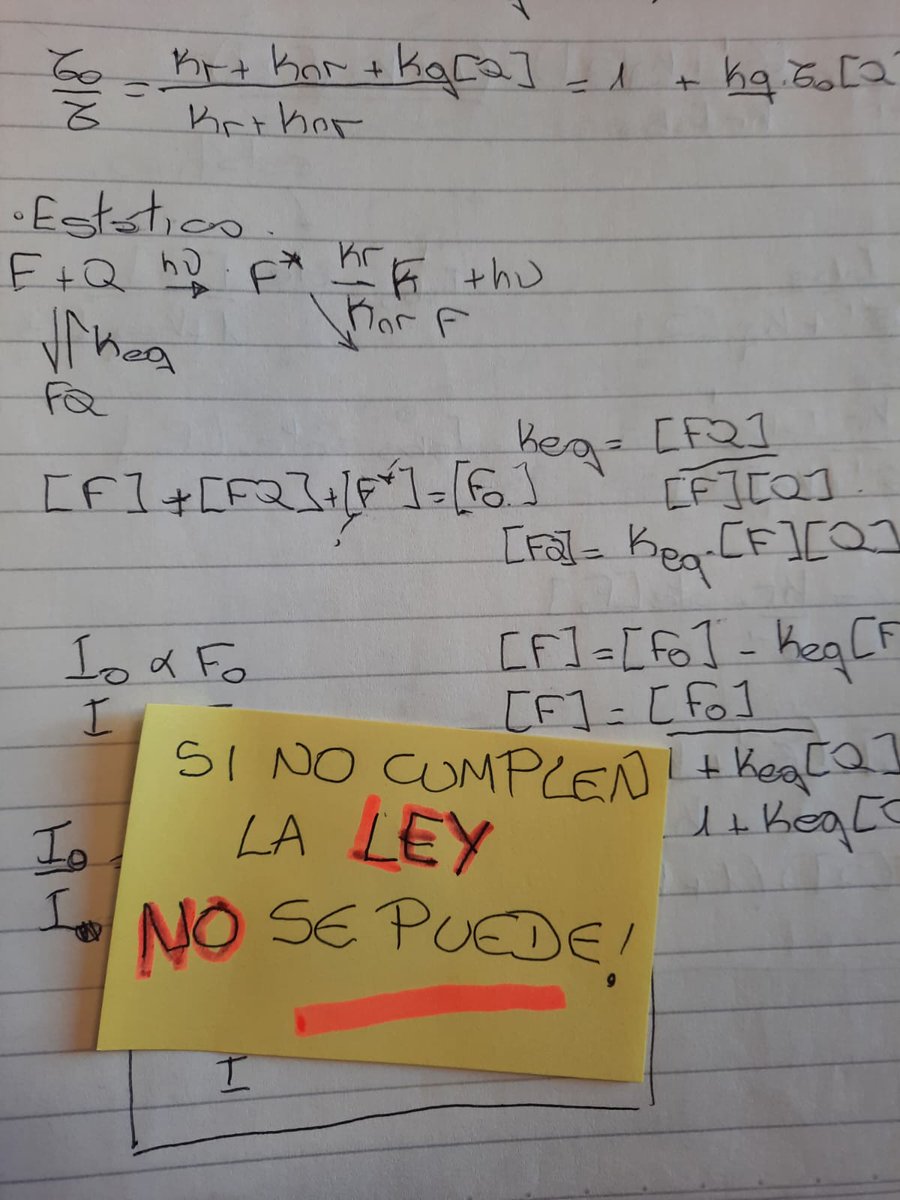 τ₀/τ = (Kr + Knr + Kq[Q])/(Kr + Knr) = 1 + Kq·τ₀[Q
·Estático.
F + Q hν → F* Kr F + hν
Knr F
Keq
FQ
Keq = [FQ]/[F][Q]
[F] + [FQ] + [F*] = [F₀]
[FQ] = Keq·[F][Q]
I₀ ∝ F₀
[F] = [F₀] - Keq[F
I
[F] = [F₀]
1 + Keq[Q]
1 + Keq[Q
I₀
I
SI NO CUMPLEN
LA LEY
NO SE PUEDE!
I